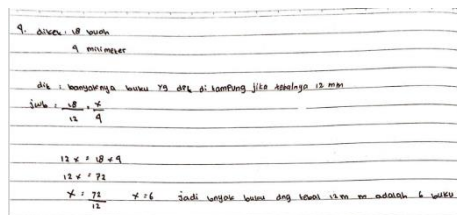 4. diket : 18 buah
4 milimeter
dit : banyaknya buku yg dpt di tampung jika tebalnya 12 mm
jwb : 18/12 = x/4
12 x = 18 x 4
12 x = 72
x = 72/12 x = 6 Jadi banyak buku dng tebal 12 m m adalah 6 buku